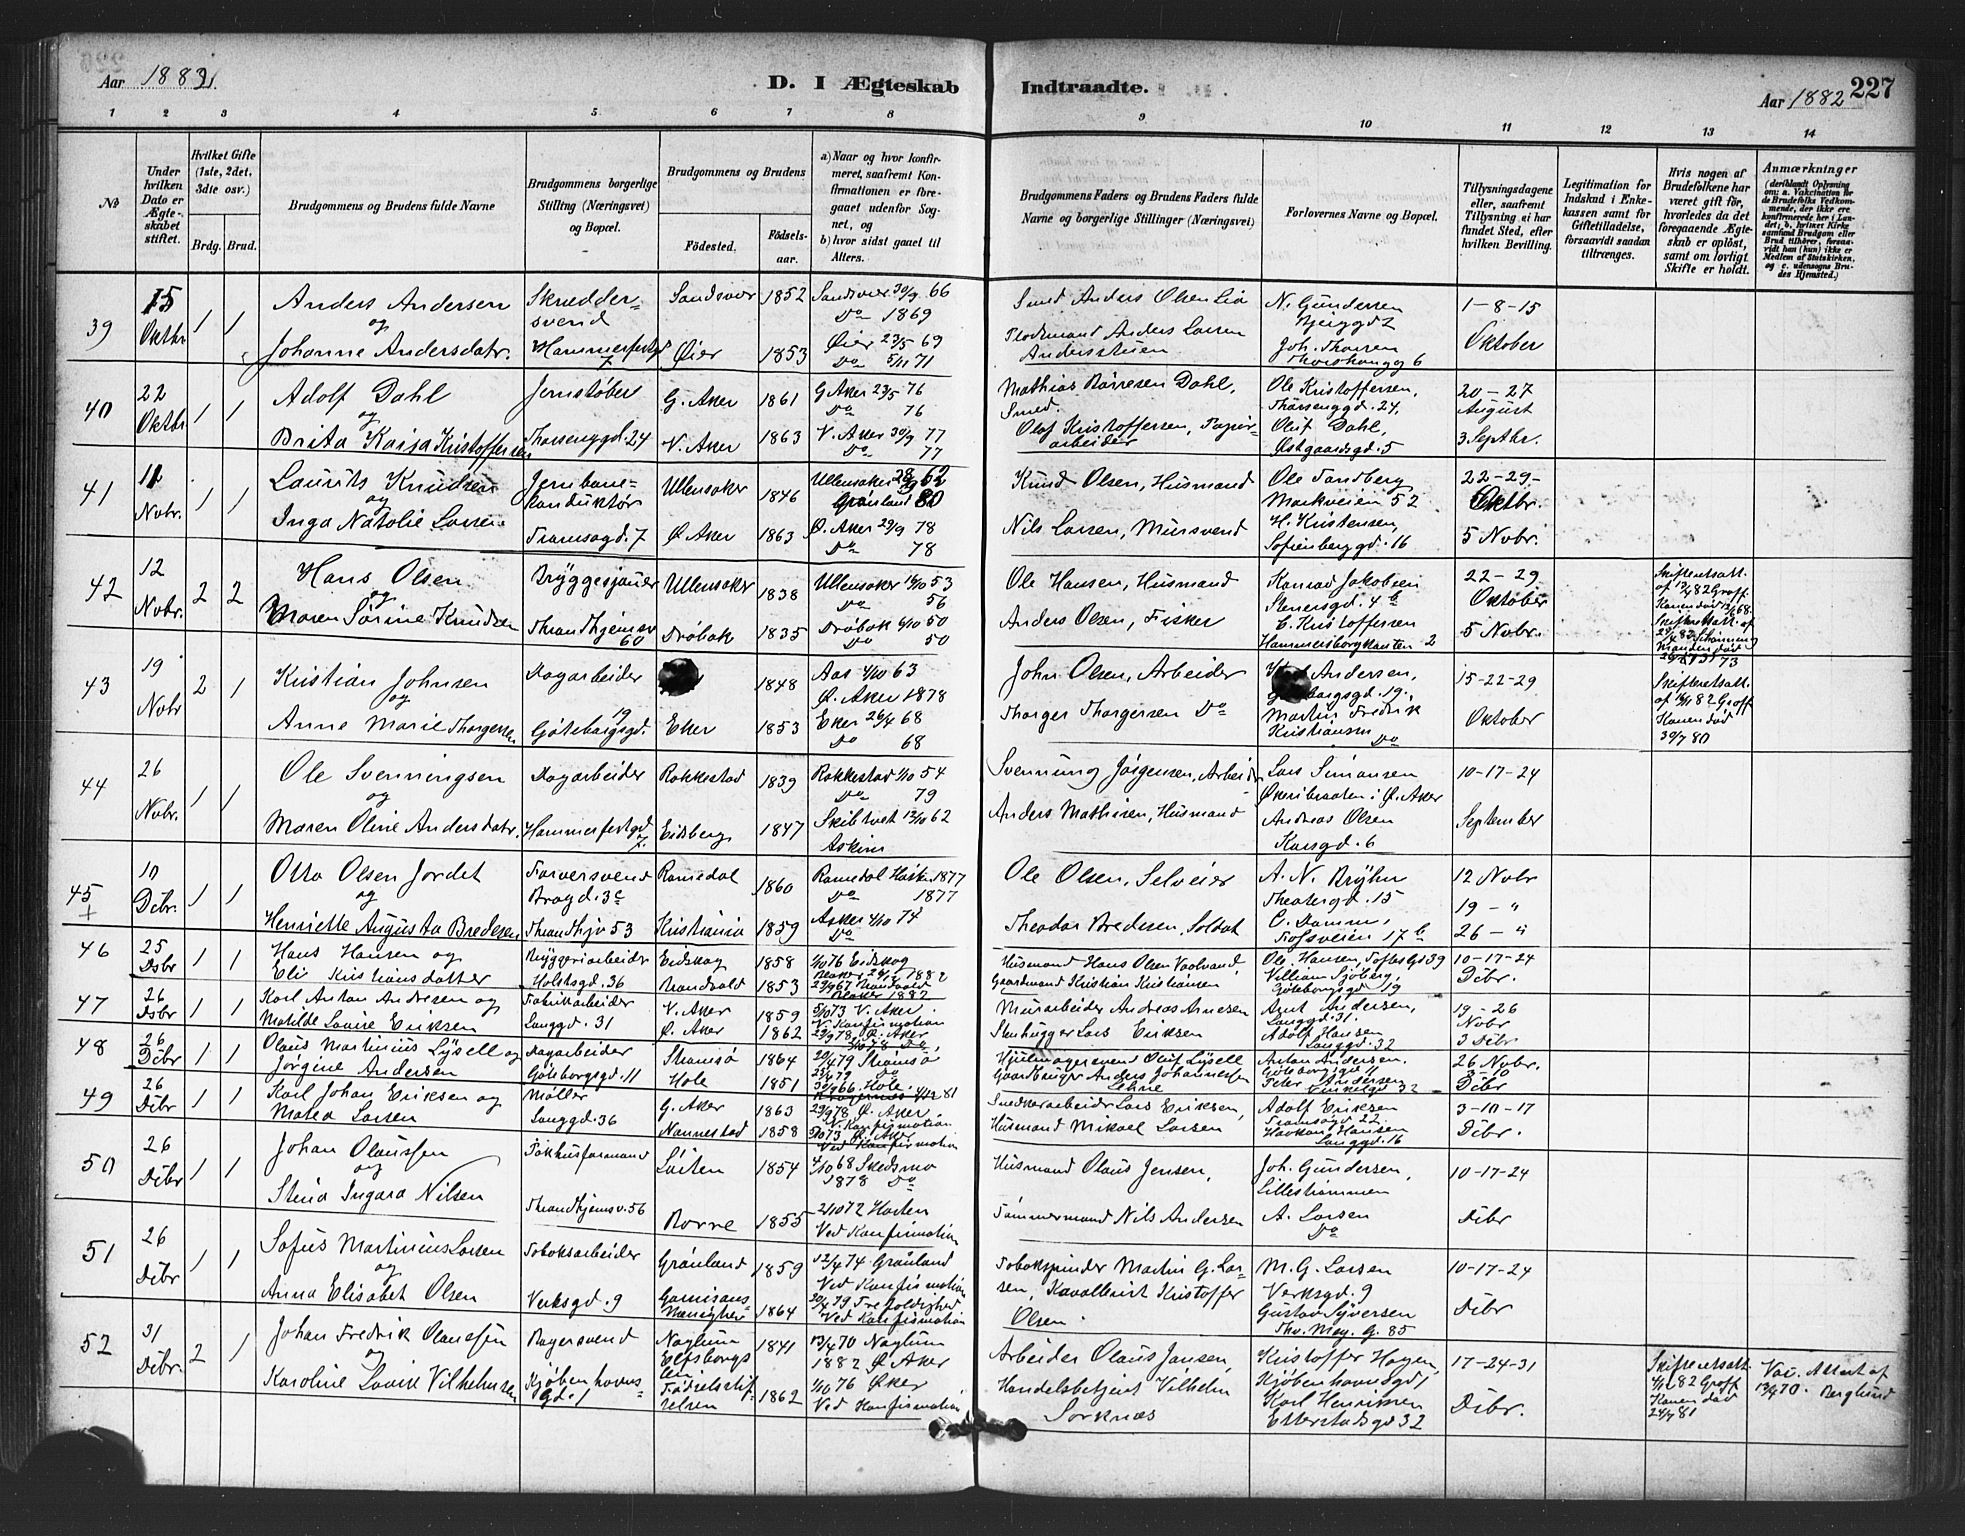 Aar 1882.
D. I Ægteskab
Indtraadte.
Aar 1882
227
1 2 3 4 5 6 7 8 9 10 11 12 13 14
No
Under hvilken Dato er Ægteskabet stiftet.
Hvilket Gifte (1ste, 2det, 3dte osv.)
Brdg. Brud.
Brudgommens og Brudens fulde Navne
Brudgommens borgerlige Stilling (Næringsvei) og Bopæl.
Brudgommens og Brudens
Fødested.
Fødselsaar.
a) Naar og hvor konfirmeret, saafremt Konfirmationen er foregaaet udenfor Sognet, og
b) hvor sidst gaaet til Alters.
Brudgommens Faders og Brudens Faders fulde Navne og borgerlige Stillinger (Næringsvei)
Forlovernes Navne og Bopæl.
Tillysningsdagene eller, saafremt Tillysning ei har fundet Sted, efter hvilken Bevilling.
Legitimation for Indskud i Enkekassen samt for Giftetilladelse, forsaavidt saadan tiltrænges.
Hvis nogen af Brudefolkene har været gift før, hvorledes da det foregaaende Ægteskab er opløst, samt om lovligt Skifte er holdt.
Anmærkninger
39
15 Oktbr
1 1
Anders Andersen
og
Johanne Andersdatr.
Skreddersvend
Hammerfestgd 7
Sandsvær 1852
Øier 1853
Sandsvær 30/9 66
Do 1869
Øier 29/5 69
Do 5/11 71
Smed Anders Olsen Lia
Flodsmand Anders Larsen
Andersstuen
N. Gundersen
Joh. Thoresen
1-8-15
Oktober
40
22 Oktbr
1 1
Adolf Dahl
og
Brita Kaisa Kristoffersen
Jernstøber
Thorsenggd. 24
G. Aker 1861
V. Aker 1863
G. Aker 23/5 76
Do 76
V. Aker 30/9 77
Do 77
Mathias Børresen Dahl,
Smed.
Olof Kristoffersen, Papirarbeider
Ole Kristoffersen,
Thorsenggd. 24.
Oluf Dahl,
Østgaardsgd. 5
20-27
August
3 Septbr.
41
Nobr.
1 1
Laurits Knudsen
og
Inga Natalie Larsen
Jernbanekonduktør
Tromsøgd. 7
Ullensaker 1846
Ø. Aker 1863
Ullensaker 62
Grønland 80
Ø. Aker 29/9 78
Do 78
Knud Olsen, Husmand
Nils Larsen, Mursvend
Ole Sandberg
Markveien 52
H. Kristensen,
Sofienberggd. 16
22-29-
Oktbr.
5 Nobr.
42
12 Nobr.
2 2
Hans Olsen
og
Maren Sørine Knudsen
Bryggesjauer
Thrandhjemsv 60
Ullensaker 1838
Drøbak 1835
Ullensaker 16/10 53
Do 56
Drøbak 6/10 50
Do 50
Ole Hansen, Husmand
Anders Olsen, Fisker
Konrad Jakobsen
Stenersgd. 4 b
E. Kristoffersen
Hammersborgkanten 2
22-29
Oktober
5 Nobr.
43
19 Nobr
2 1
Kristian Johnsen
og
Anne Marie Thorgersen
Dagarbeider
Gøteborgsgd. 19
1848
Eker 1853
Aas 4/10 63
Ø. Aker 1878
Eker 26/4 68
Do 68
John Olsen, Arbeider
Thorger Thorgersen Do
Andersen,
Gøteborgsgd. 19.
Martin Fredrik
Kristiansen Do
15-22-29
Oktober
Skifteretsatt.
af 16/11 82 Groff
Konen død
30/7 80
44
26 Nobr.
1 1
Ole Svenningsen
og
Maren Oline Andersdatr.
Dagarbeider
Hammerfestgd 7.
Rakkestad 1839
Eidsberg 1847
Rakkestad 1/10 54
Do 79
Skibtvet 12/10 62
Askim
Svennung Jørgensen, Arbeider
Anders Mathisen, Husmand
Lars Simonsen
Økeribraaten i Ø. Aker
Andreas Olsen
Korsgd. 6
10-17-24
September
45
+
10 Dcbr.
1 1
Otto Olsen Jordet
og
Henriette Augusta Bredesen
Farversvend
Brogd. 3c
Thrandhjv 53
Romedal 1860
Kristiania 1859
Romedal 1877
Do 1877
Asker 4/10 74
Do
Ole Olsen, Selveier
Theodor Bredesen, Soldat
A. N. Bryhn
Theatergd. 15
C. Damm,
Fossveien 17 b
12 Nobr
19 - "
26 - "
46
25 Dsbr
1 1
Hans Hansen og
Eli Kristiansdatter
Bryggeriarbeider
Holstsgd. 36
Eidskog 1858
Nandvold 1853
1/10 76 Eidskog
Husmand Hans Olsen
Gaardmand Kristian Kristiansen
Ole Hansen, Toftes Gd 39
Villiam Sjøberg,
Gøteborgsgd 19
10-17-24
Dcbr.
47
26 Dsbr
1 1
Karl Anton Andresen og
Matilde Lovise Eriksen
Fabrikarbeider
Langgd. 31
V. Aker 1859
Ø. Aker 1862
5/10 73 V. Aker.
V. Konfirmation
29/9 78 Ø. Aker
Murarbeider Andreas Arnesen
Stenhugger Lars Eriksen
Andersen,
Langgd. 31.
Adolf Hansen
Langgd. 32
19-26
Nobr
3 Dcbr
48
26 Dcbr
1 1
Olaus Martinius Lysell og
Jørgine Andersen
Dagarbeider
Gøteborgsgd. 11
Strømsø 1864
Hole 1851
20/4 79 Strømsø
Do
30/9 66 Hole.
Hjulmagersvend Oluf Lysell
Gaardbruger Anders Johannessen
Anton Andersen.
Gøteborgsgd 11
Peter Andersen
Vinkelgd 32
26 Nobr.
3-10
Dcbr
49
26 Dcbr
1 1
Karl Johan Eriksen og
Matea Larsen
Møller
Langgd. 36
G. Aker 1863
Nannestad 1858
29/9 78 Ø. Aker.
V. Konfirmation
5/10 73 Ø. Aker
Ved Konfirmation
Snedkerarbeider Lars Eriksen,
Husmand Mikael Larsen
Adolf Eriksen
Tromsøgd 22.
Haakon Hansen
Langgd. 16
3-10-17
Dcbr.
50
26 Dcbr
1 1
Johan Olaussen
og
Stina Ingara Nilsen
Pakhusformand
Thrandhjemsv. 56
Løiten 1854
Borre 1855
4/10 68 Skedsmo
1878 Do
2/10 72 Horten
Ved Konfirmation
Husmand Olaus Jensen,
Tømmermand Nils Andersen
Joh. Gundersen,
Lillestrømmen
A. Larsen
Do
10-17-24
Dcbr
51
26 Dcbr
1 1
Sofus Martinius Larsen
og
Anna Elisabet Olsen
Tobaksarbeider
Verksgd. 9
Grønland 1859
Garnisons-
Menighed 1864
12/4 74 Grønland
Ved Konfirmation
20/4 79 Trefoldighed
Ved Konfirmation
Tobakspinder Martin G. Larsen,
Kavallerist Kristoffer
Olsen.
M. G. Larsen
Verksgd. 9
Gustav Syversen
Thv. Mey. G. 85
10-17-24
Dcbr
52
31 Dcbr.
2 1
Johan Fredrik Olaussen
og
Karoline Lovise Vilhelmsen
Bagersvend
Kjøbenhavnsgd. 1
Naglum
Elfsborgs
len 1841
Fødselsstiftelsen 1862
13/4 70 Naglum
1882 Ø. Aker
1/10 76 Øker
Ved Konfirmation
Arbeider Olaus Jansen,
Handelsbetjent Vilhelm
Sorknæs
Kristoffer Hagen,
Kjøbenhavnsgd 1
Karl Henriksen
Etterstadsgd 32
17-24-31
Dcbr.
Skifteretsatt.
4/12 82 Groff
Konen død
24/7 81
Vac. Attest af
13/4 70. Berglund